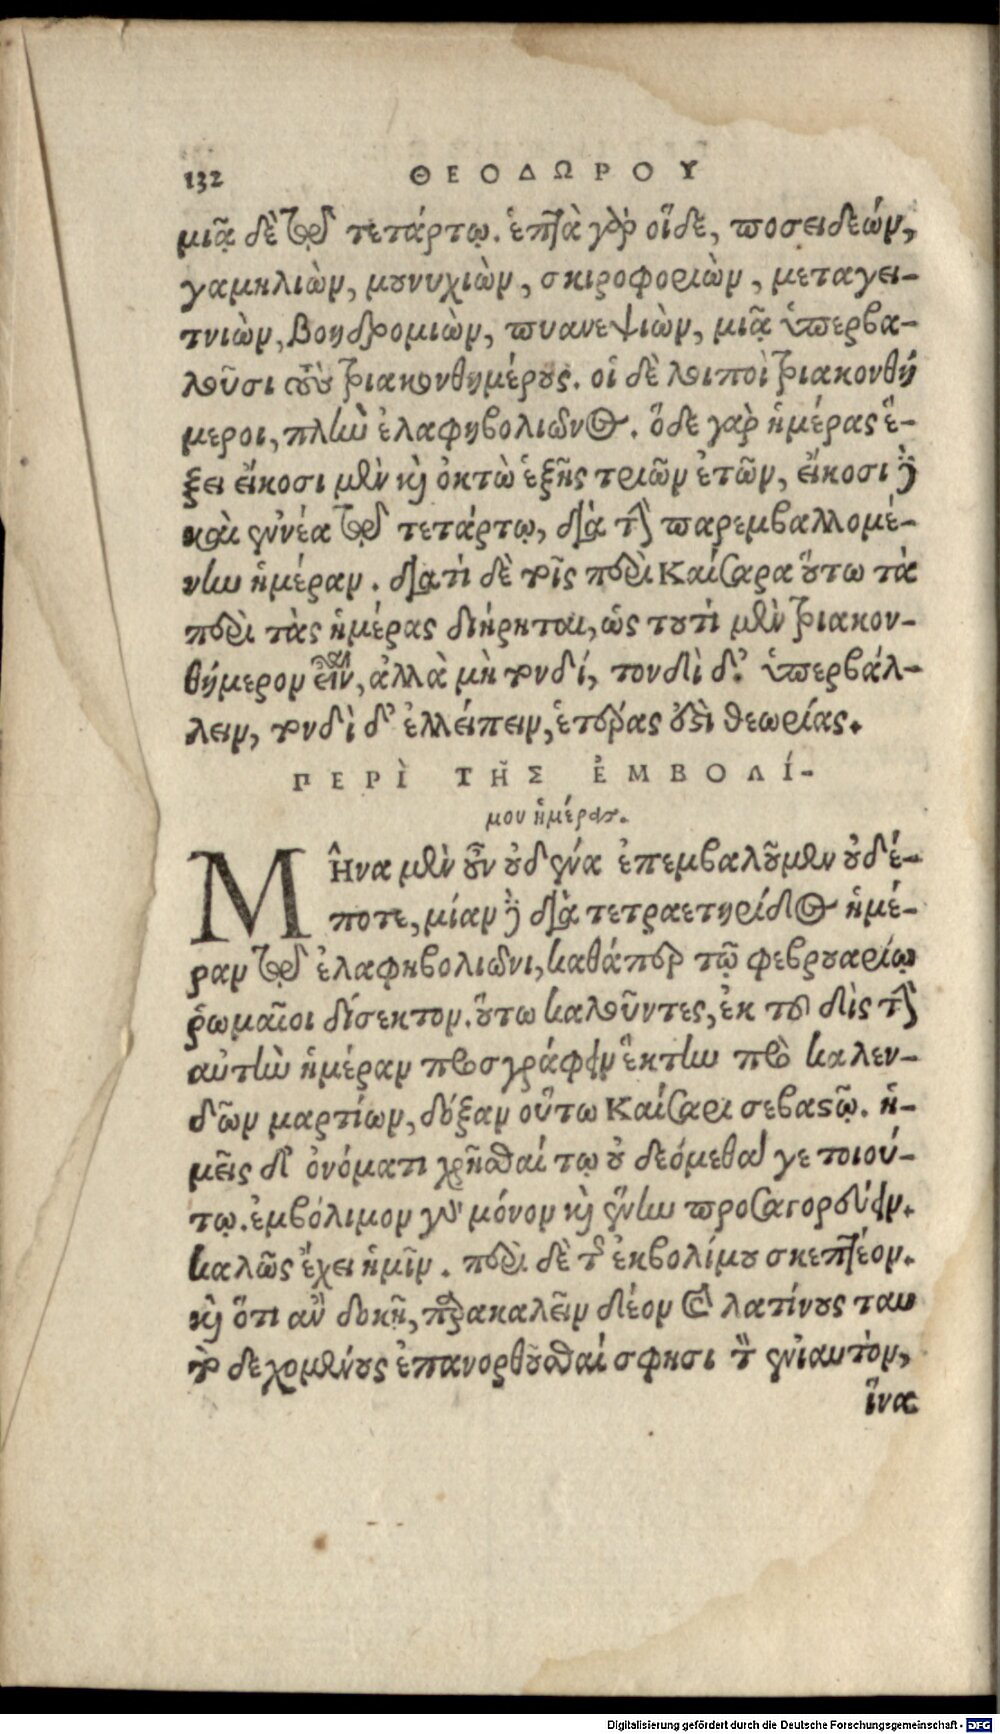 132 ΘΕΟΔΩΡΟΥ
μιᾷ δὲ τῷ τετάρτῳ. ἑπτὰ γὰρ οἵδε, ποσειδεών,
γαμηλιὼν, μουνυχιὼν, σκιροφοριὼν, μεταγει-
τνιὼν, βοηδρομιὼν, πυανεψιὼν, μιᾷ ὑπερβα-
λοῦσι τοὺς τριακονθημέρους. οἱ δὲ λοιποὶ τριακονθή
μεροι, πλὴν ἐλαφηβολιῶνος. ὅδε γὰρ ἡμέρας ἕ-
ξει εἴκοσι μὲν καὶ ὀκτὼ ἑξῆς τριῶν ἐτῶν, εἴκοσι δὲ
καὶ ἐννέα τῷ τετάρτῳ, διὰ τὴν παρεμβαλλομέ-
νην ἡμέραν. διατὶ δὲ τοῖς περὶ Καίσαρα οὕτω τὰ
περὶ τὰς ἡμέρας διήρηται, ὡς τουτὶ μὲν τριακον-
θήμερον εἶναι, ἀλλὰ μὴ τονδί, τονδὶ δ' ὑπερβάλ-
λειν, τονδὶ δ' ἐλλείπειν, ἑτέρας ἐστὶ θεωρίας.
ΠΕΡῚ ΤΗ͂Σ ἘΜΒΟΛΊ-
μου ἡμέρας.
ΜΗ͂να μὲν οὖν οὐδένα ἐπεμβαλοῦμεν οὐδέ-
ποτε, μίαν δὲ διὰ τετραετηρίδος ἡμέ-
ραν τῷ ἐλαφηβολιῶνι, καθάπερ τῷ φεβρουαρίῳ
ῥωμαῖοι δίσεκτον. οὕτω καλοῦντες, ἐκ τοῦ δὶς τὴν
αὐτὴν ἡμέραν προσγράφειν ἕκτην πρὸ καλεν-
δῶν μαρτίων, δόξαν οὕτω Καίσαρι σεβαστῷ. ἡ-
μεῖς δ' ὀνόματι χρῆσθαί τῳ οὐ δεόμεθά γε τοιού-
τῳ. ἐμβόλιμον γὰρ μόνον καὶ ἕνην προσαγορεύειν.
καλῶς ἔχει ἡμῖν. περὶ δὲ τοῦ ἐκβολίμου σκεπτέον.
καὶ ὅτι ἂν δοκῇ, παρακαλεῖν δέον τοὺς λατίνους ταυ
τὸ δεχομένους ἐπανορθοῦσθαί σφησι τὸν ἐνιαυτόν,
ἵνα
Digitalisierung gefördert durch die Deutsche Forschungsgemeinschaft - DFG